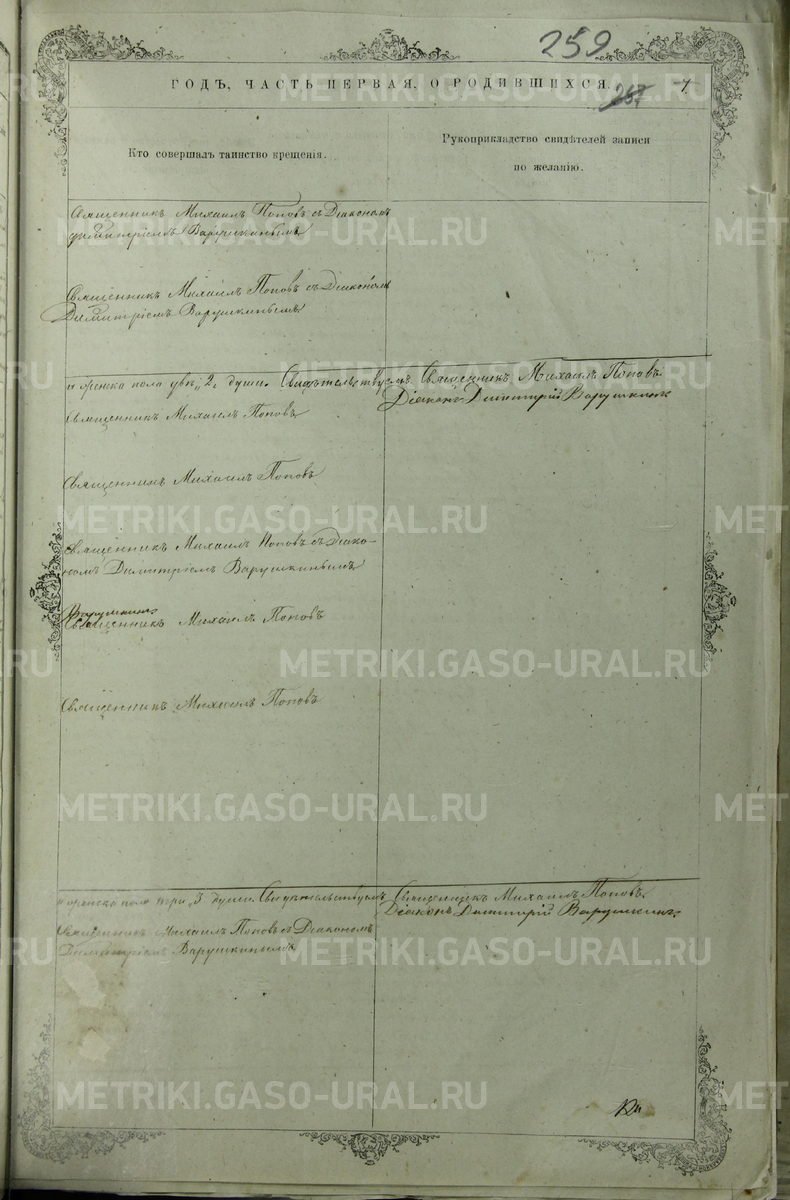 259
ГОДЪ, ЧАСТЬ ПЕРВАЯ, О РОДИВШИХСЯ.
257
7
Кто совершалъ таинство крещенія.
Рукоприкладство свидѣтелей записи
по желанію.
Священникъ Михаилъ Поповъ съ Діакономъ
Димитріемъ Варушкинымъ
Священникъ Михаилъ Поповъ съ Діакономъ
Димитріемъ Варушкинымъ
и женска пола двѣ "2" души. Свидѣтельствуемъ Священникъ Михаилъ Поповъ
Діаконъ Димитрій Варушкинъ
Священникъ Михаилъ Поповъ
Священникъ Михаилъ Поповъ
Священникъ Михаилъ Поповъ съ Діако-
номъ Димитріемъ Варушкинымъ
Варушкинъ
Священникъ Михаилъ Поповъ
Священникъ Михаилъ Поповъ
и женска пола три "3" души. Свидѣтельствуемъ Священникъ Михаилъ Поповъ
Діаконъ Димитрій Варушкинъ
Священникъ Михаилъ Поповъ съ Діакономъ
Димитріемъ Варушкинымъ
METRIKI.GASO-URAL.RU